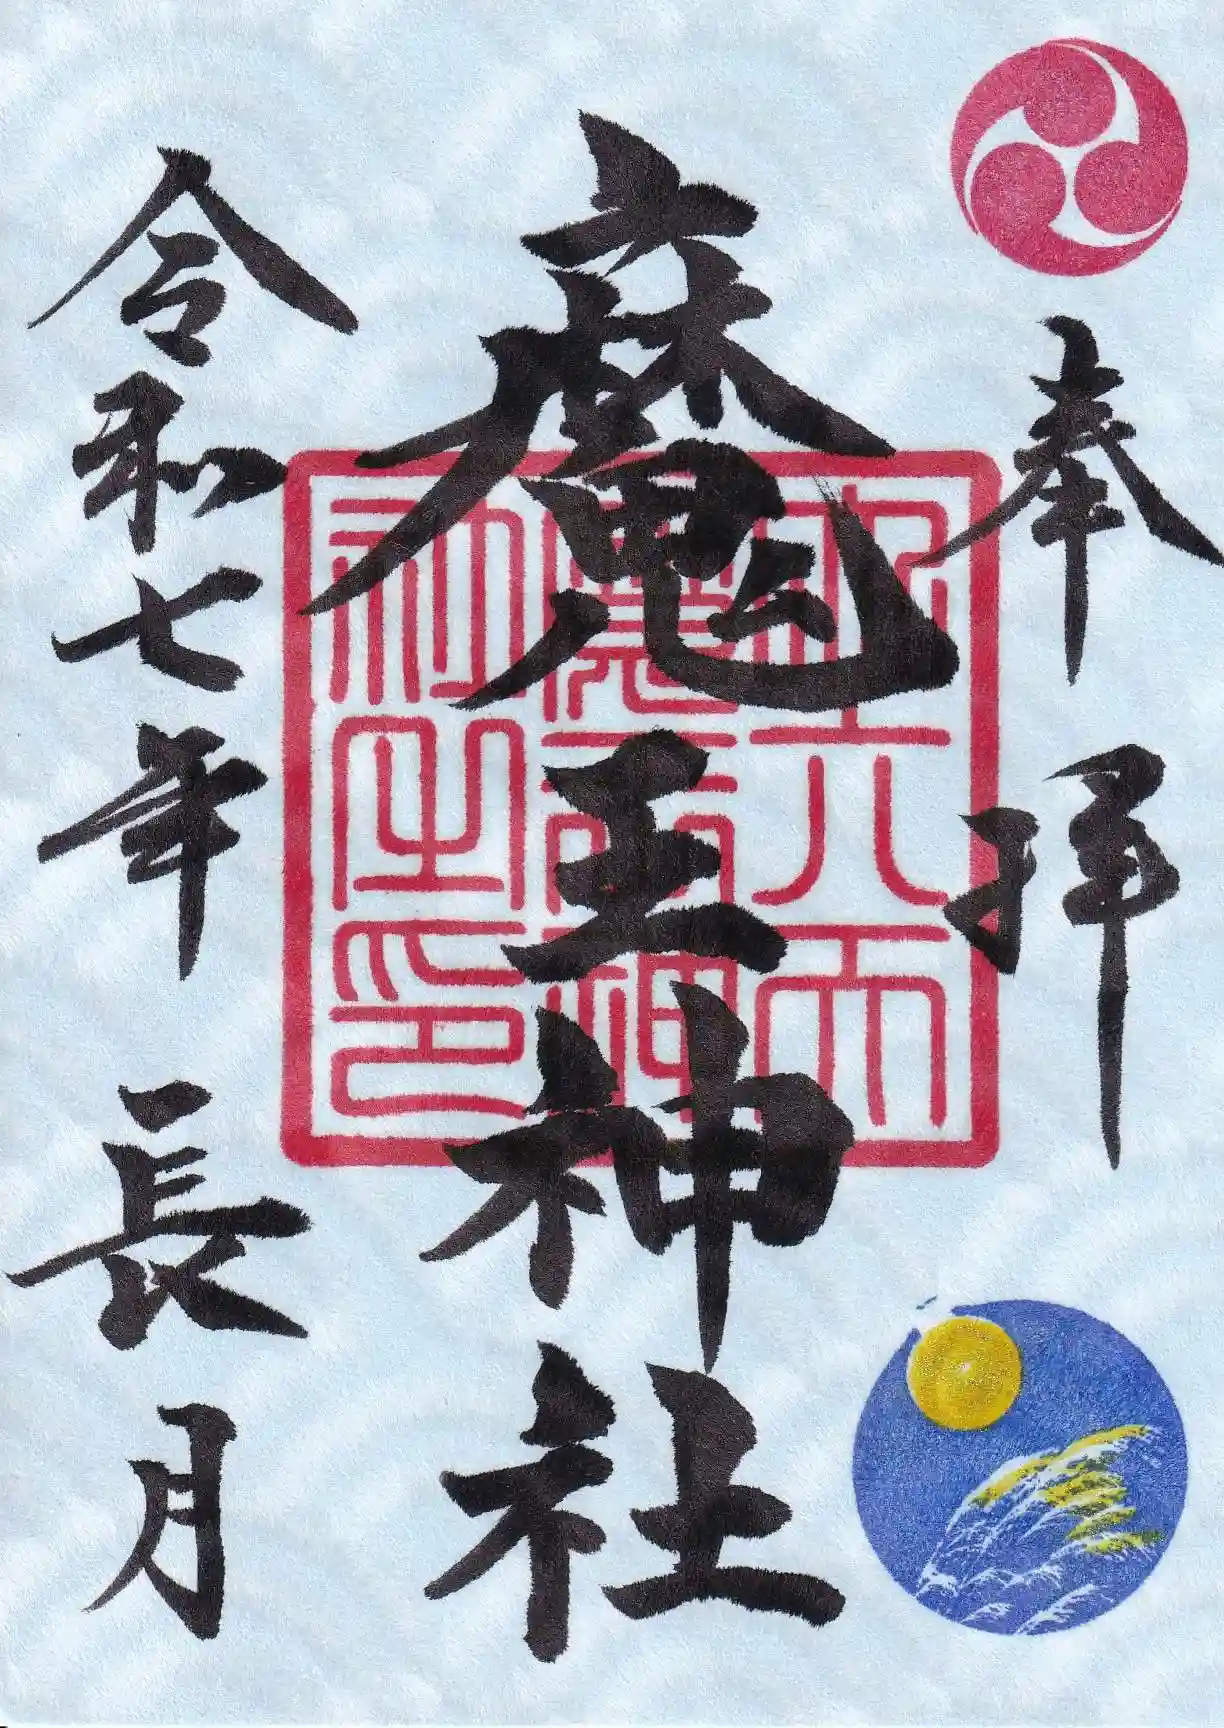 奉拝
魔王神社
令和七年 長月